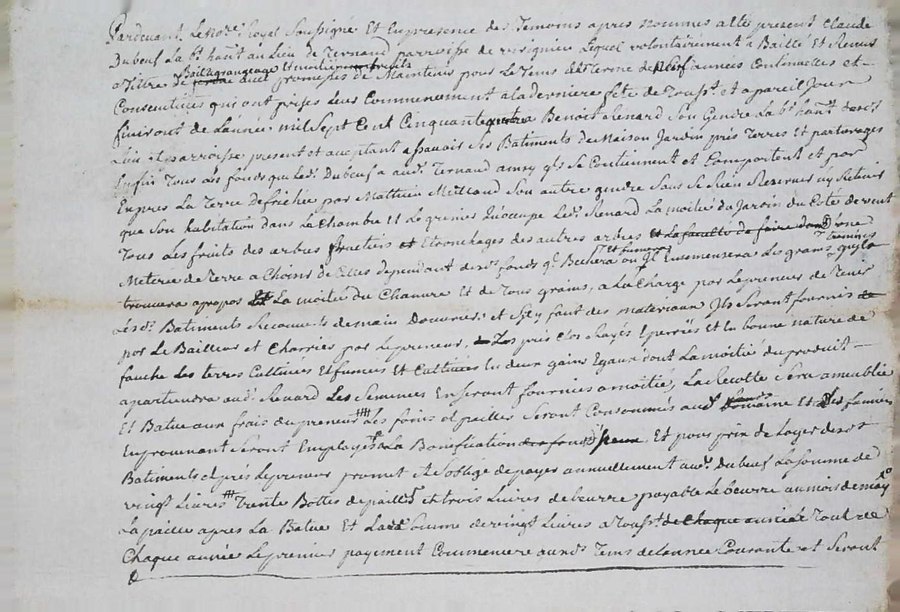 Pardevant Le Nore Royal Soussigné Et En presence des Temoins apres nommes a été present Claude
Dubeuf La br hant au Lieu de Ternand parroisse de Lequel volontairement a Baillé Et Remis
Baillagrangeage Et moitié fruits
a Titre De avec promesse de Maintenir pour Le Tems Et Terme de Neuf années Continuelles et
Consecutives qui ont prises Leur Commencement a la derniere fete de Toussts et a pareil Jour
finiront de L'année mil Sept Cent Cinquante a Benoit Renard Son Gendre La br hant aud.
Lieu et parroisse present et acceptant assavoir Ses Batiments de Maison Jardin prés Terres et paturages
Enfin Tous Les fonds que Led. Dubeuf a aud. Ternand ainsy qls Se Contiennent et Comportent et par
Expres La Terre Defrichée par Mathieu Son autre gendre Sans Se Rien Reserver ny Retenir
que Son habitation dans La Chambre Et Le grenier qu'occupe Led. Renard La moitié du Jardin du Coté de vent
Tous Les fruits des arbres fruitiers et Etronchages des autres arbres et La faculté de faire dans une
Meterie de Terre a Choisir de Celles dependant desd. fonds ql Bechera ou ql Ensemensera des grains qu'yl
et fumera
tremois
trouvera apropos La moitié du Chanvre Et de Tous grains, a La Charge par Le preneur de Tenir
Lesd. Batiments Recouverts de main Douvrier, et Sy y faut des materiaux Ils Seront fournis
par Le Bailleur et Charriés par Le preneur, Les prés Clos Rayés Eperriés et En bonne nature de
fauche Les Terres Cultivées Et fumées Et Cultivées En deux gains Egaux dont La moitié du produit
apartiendra aud. Renard Les Semences En Seront fournies a moitié, La Recolte Sera amublée
Et Batue aux frais du preneur Les foins et pailles Seront Consommés aud. domaine Et Les fumiers
En provenant Seront Employés a La Bonification Et pour prix de Loyer desd.
Batiments et prés Le preneur promet et S'oblige de payer annuellement aud. Dubeuf La Somme de
vingt Livres Trente Bottes de paille et trois Livres de beurre payable Le beurre au mois de may
La paille apres La Batue Et Lad. Somme de vingt Livres a Toussts de Chaque année Tout de
Chaque année Le premier payement Commencera aud. Tems de L'année Courante et Seront